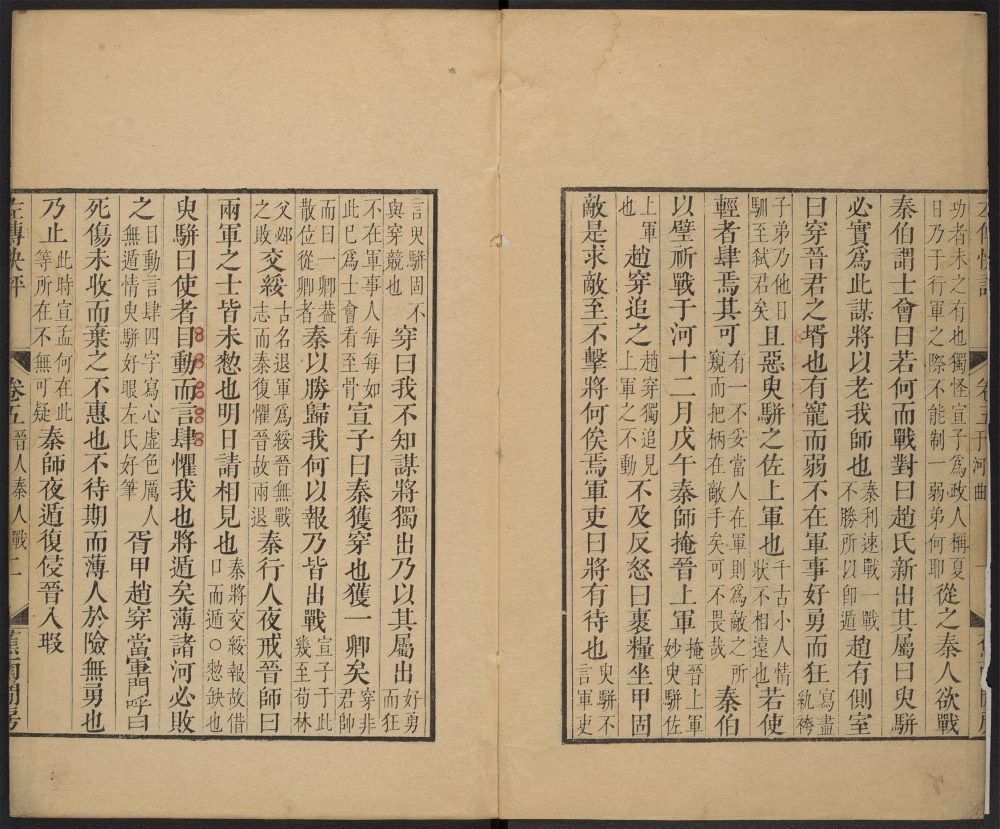 功者未之有也獨怪宣子爲政人稱夏
日乃于行軍之際不能制一弱弟何耶
從之秦人欲戰
秦伯謂士會曰若何而戰對曰趙氏新出其屬曰臾駢
必實爲此謀將以老我師也
秦利速戰一戰
不勝所以卽遁
趙有側室
曰穿晉君之壻也有寵而弱不在軍事好勇而狂
寫盡
紈袴
子弟乃他日
馴至弑君矣
且惡臾駢之佐上軍也
千古小人情
狀不相遠也
若使
輕者肆焉其可
有一不妥當人在軍則爲敵之所
窺而把柄在敵手矣可不畏哉
秦伯
以璧祈戰于河十二月戊午秦師掩晉上軍
掩晉上軍
妙臾駢佐
上軍
也
趙穿追之
趙穿獨追見
上軍之不動
不及反怒曰裹糧坐甲固
敵是求敵至不擊將何俟焉軍吏曰將有待也
臾駢不
言軍吏
言臾駢固不
與穿競也
穿曰我不知謀將獨出乃以其屬出
好勇
而狂
不在軍事人每每如
此已爲士會看至骨
宣子曰秦獲穿也獲一卿矣
穿非
君帥
而曰一卿葢
散位從卿者
秦以勝歸我何以報乃皆出戰
宣子于此
幾至荀林
父邲
之敗
交綏
古名退軍爲綏晉無戰
志而秦復懼晉故兩退
秦行人夜戒晉師曰
兩軍之士皆未憖也明日請相見也
秦將交綏報故借
口而遁○憖缺也
臾駢曰使者目動而言肆懼我也將遁矣薄諸河必敗
之
目動言肆四字寫心虛色厲人
無遁情臾駢好眼左氏好筆
胥甲趙穿當軍門呼曰
死傷未收而棄之不惠也不待期而薄人於險無勇也
乃止
此時宣孟何在此
等所在不無可疑
秦師夜遁復侵晉入瑕
左傳快評
卷五
晉人秦人戰
二
蕉南閒房